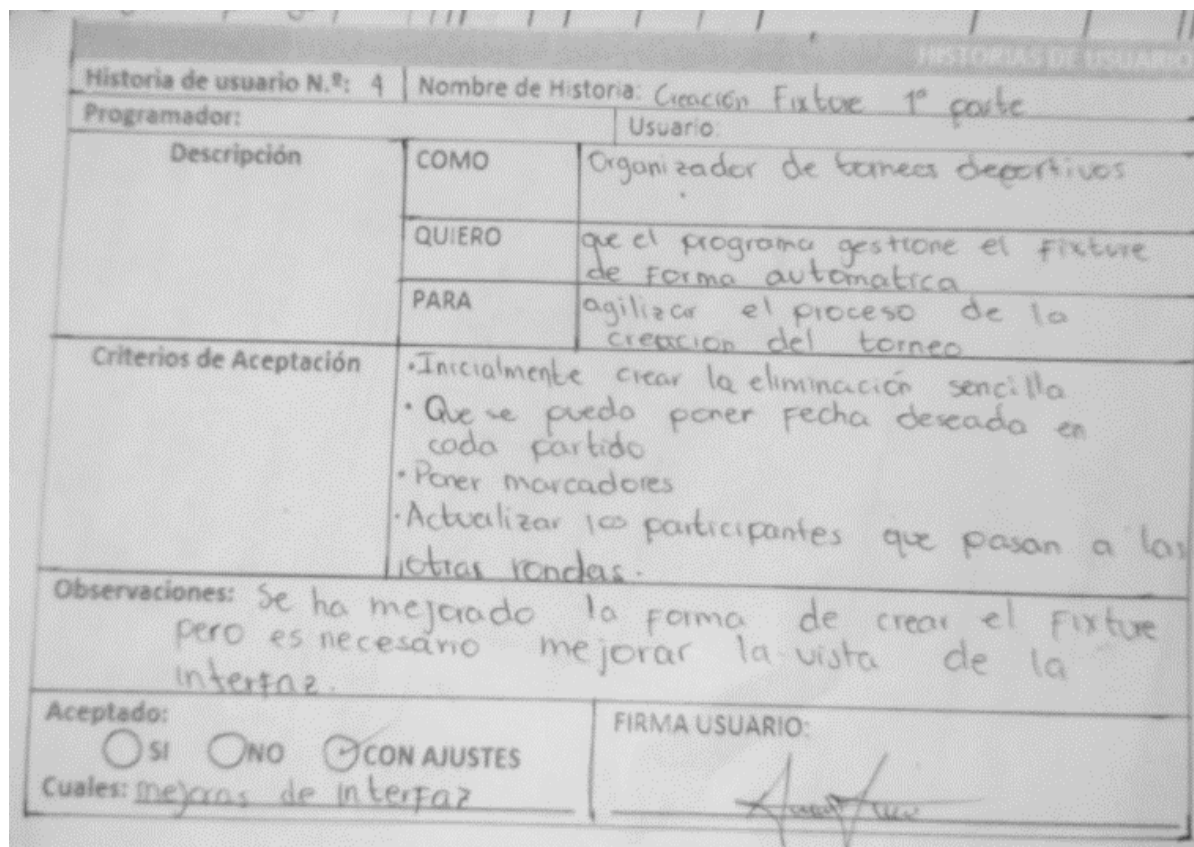 HISTORIAS DE USUARIO
Historia de usuario N.º: 4 Nombre de Historia: Creación Fixture 1ª parte
Programador: Usuario:
Descripción COMO Organizador de torneos deportivos
QUIERO que el programa gestione el Fixture
de Forma automatica
PARA agilizar el proceso de la
creación del torneo
Criterios de Aceptación
• Inicialmente crear la eliminación sencilla
• Que se puedo poner Fecha deseada en
cada partido
• Poner marcadores
• Actualizar los participantes que pasan a las
otras rondas.
Observaciones: Se ha mejorado la Forma de crear el Fixture
pero es necesario mejorar la vista de la
interfaz.
Aceptado: FIRMA USUARIO:
SI NO CON AJUSTES
Cuales: mejoras de interfaz